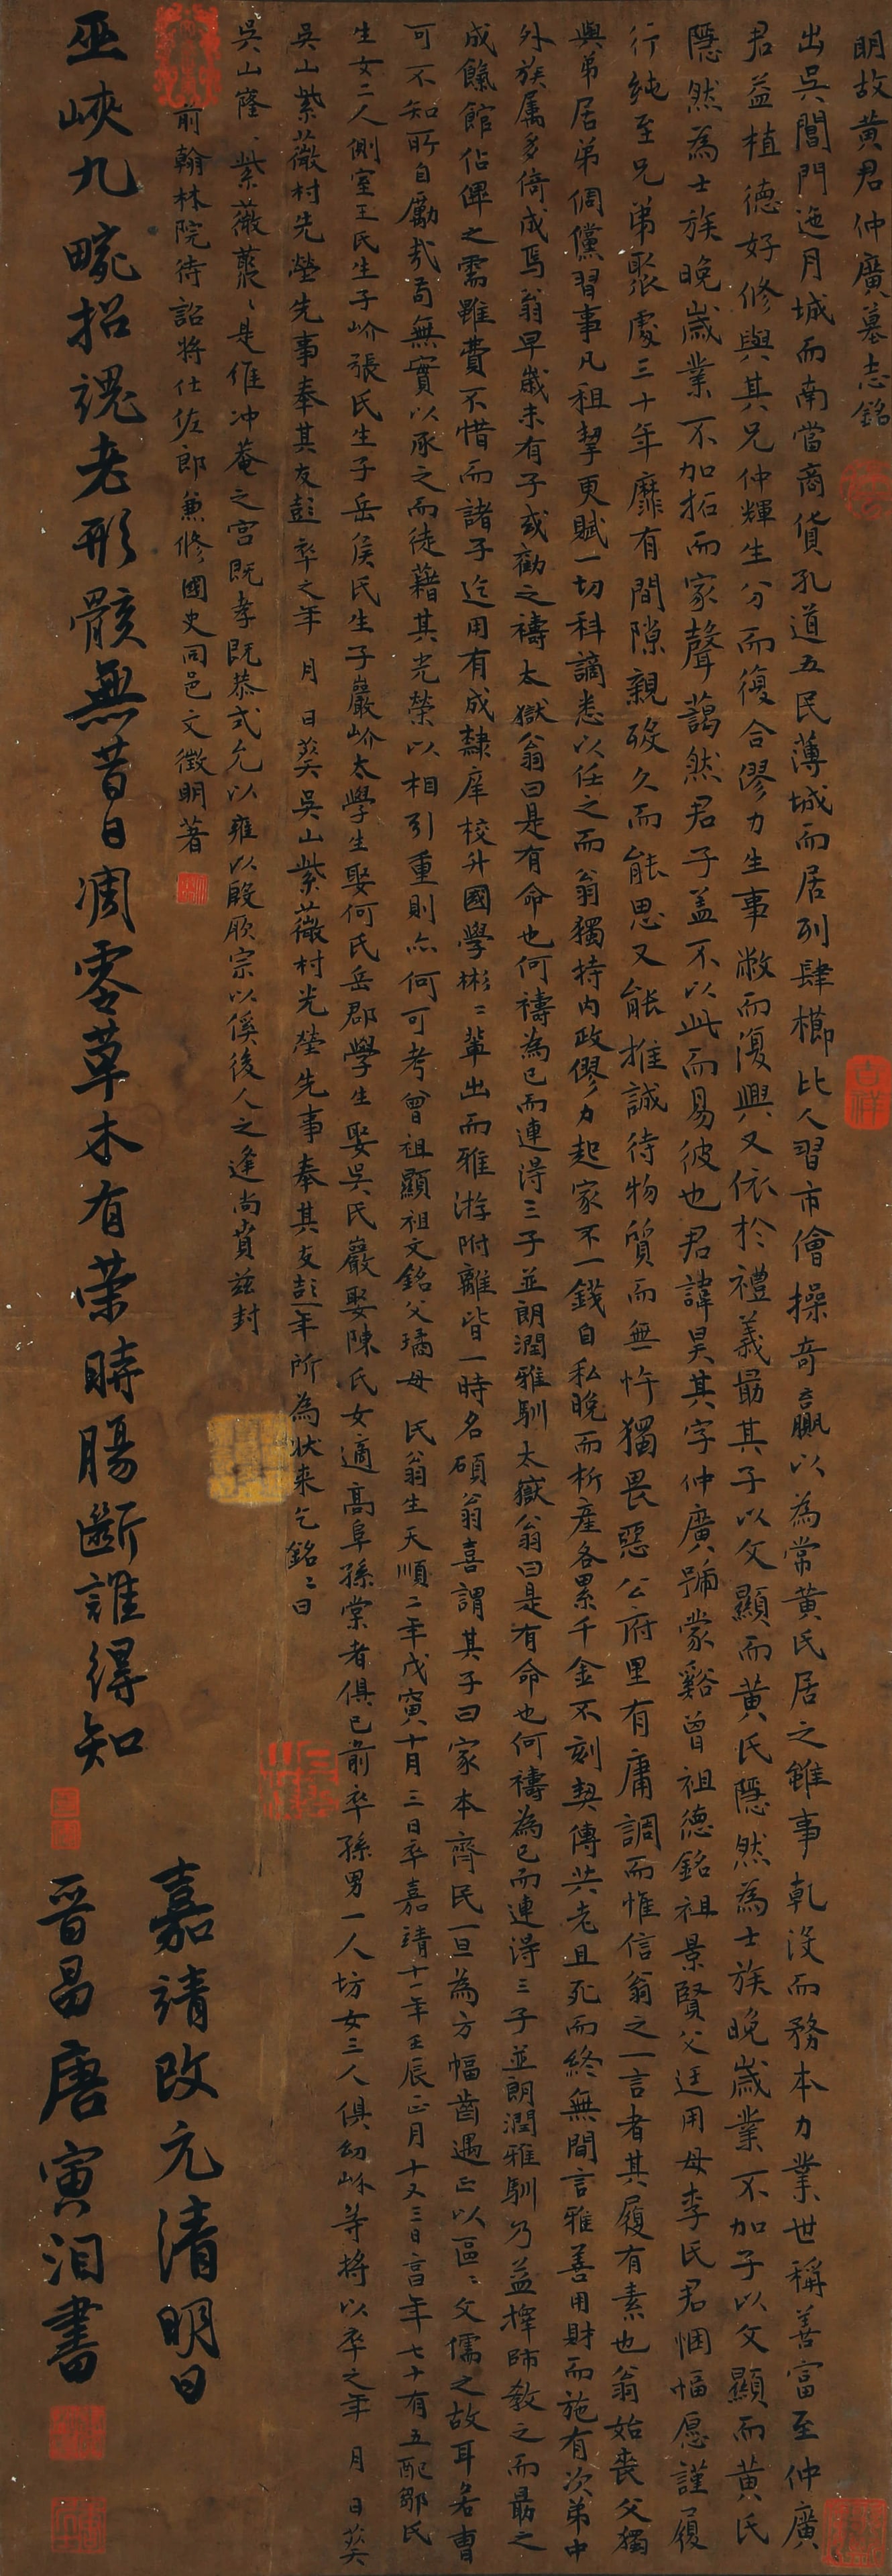 明故黄君仲廣墓志銘
出吳閶門迤月城而南當商貨孔道五民薄城而居列肆櫛比人習市儈操奇贏以為常黄氏居之雖事乾沒而務本力業世稱善富至仲廣
君益植德好修與其兄仲輝生分而復合僇力生事敝而復興又依於禮義勗其子以文顯而黄氏隱然為士族晚歲業不加子以文顯而黄氏
隱然為士族晚歲業不加拓而家聲藹然君子盖不以此而易彼也君諱昊其字仲廣號蒙谿曾祖德銘祖景賢父廷用母李氏君悃愊愿謹履
行純至兄弟聚處三十年靡有間隙親歿久而能思又能推誠待物質而無忤獨畏惡公府里有庸調而惟信翁之一言者其履有素也翁始喪父獨
與弟居弟倜儻習事凡租挈更賦一切科謫悉以任之而翁獨持内政僇力起家不一錢自私晚而析產各累千金不刻契傅共老且死而終無間言雅善用財而施有次弟中
外族属多倚成焉翁早歲未有子或勸之禱太嶽翁曰是有命也何禱為已而連得三子並朗潤雅馴太嶽翁曰是有命也何禱為已而連得三子並朗潤雅馴乃益擇師教之而勗之
成餼館佔俾之需雖費不惜而諸子迄用有成隸庠校升國學彬〻輩出而雅游附離皆一時名碩翁喜謂其子曰家本齊民一旦為方幅齒遇正以區〻文儒之故耳若曹
可不知所自勵哉苟無實以承之而徒藉其光榮以相引重則亦何可考曾祖顯祖文銘父璚母 氏翁生天順二年戊寅十月三日卒嘉靖十一年壬辰正月十又三日享年七十有五配鄒氏
生女二人側室王氏生子岕張氏生子岳侯氏生子巖岕太學生娶何氏岳郡學生娶吳氏巖娶陳氏女適高阜孫棠者俱已前卒孫男一人坊女三人俱幼岕等將以卒之年 月 日葬
吳山紫薇村先塋先事奉其友彭卒之年 月 日葬吳山紫薇村先塋先事奉其友彭年所為狀来乞銘〻曰
吳山窿〻紫薇叢〻是惟冲菴之宫既孝既恭式允以雍以殷厥宗以傒後人之逢尚賁兹封
前翰林院待詔將仕佐郎兼修國史同邑文徵明著
巫峽九畹招魂老形骸無昔日凋零草木有榮時腸斷誰得知
嘉靖改元清明日
晉昌唐寅泪書
吉祥